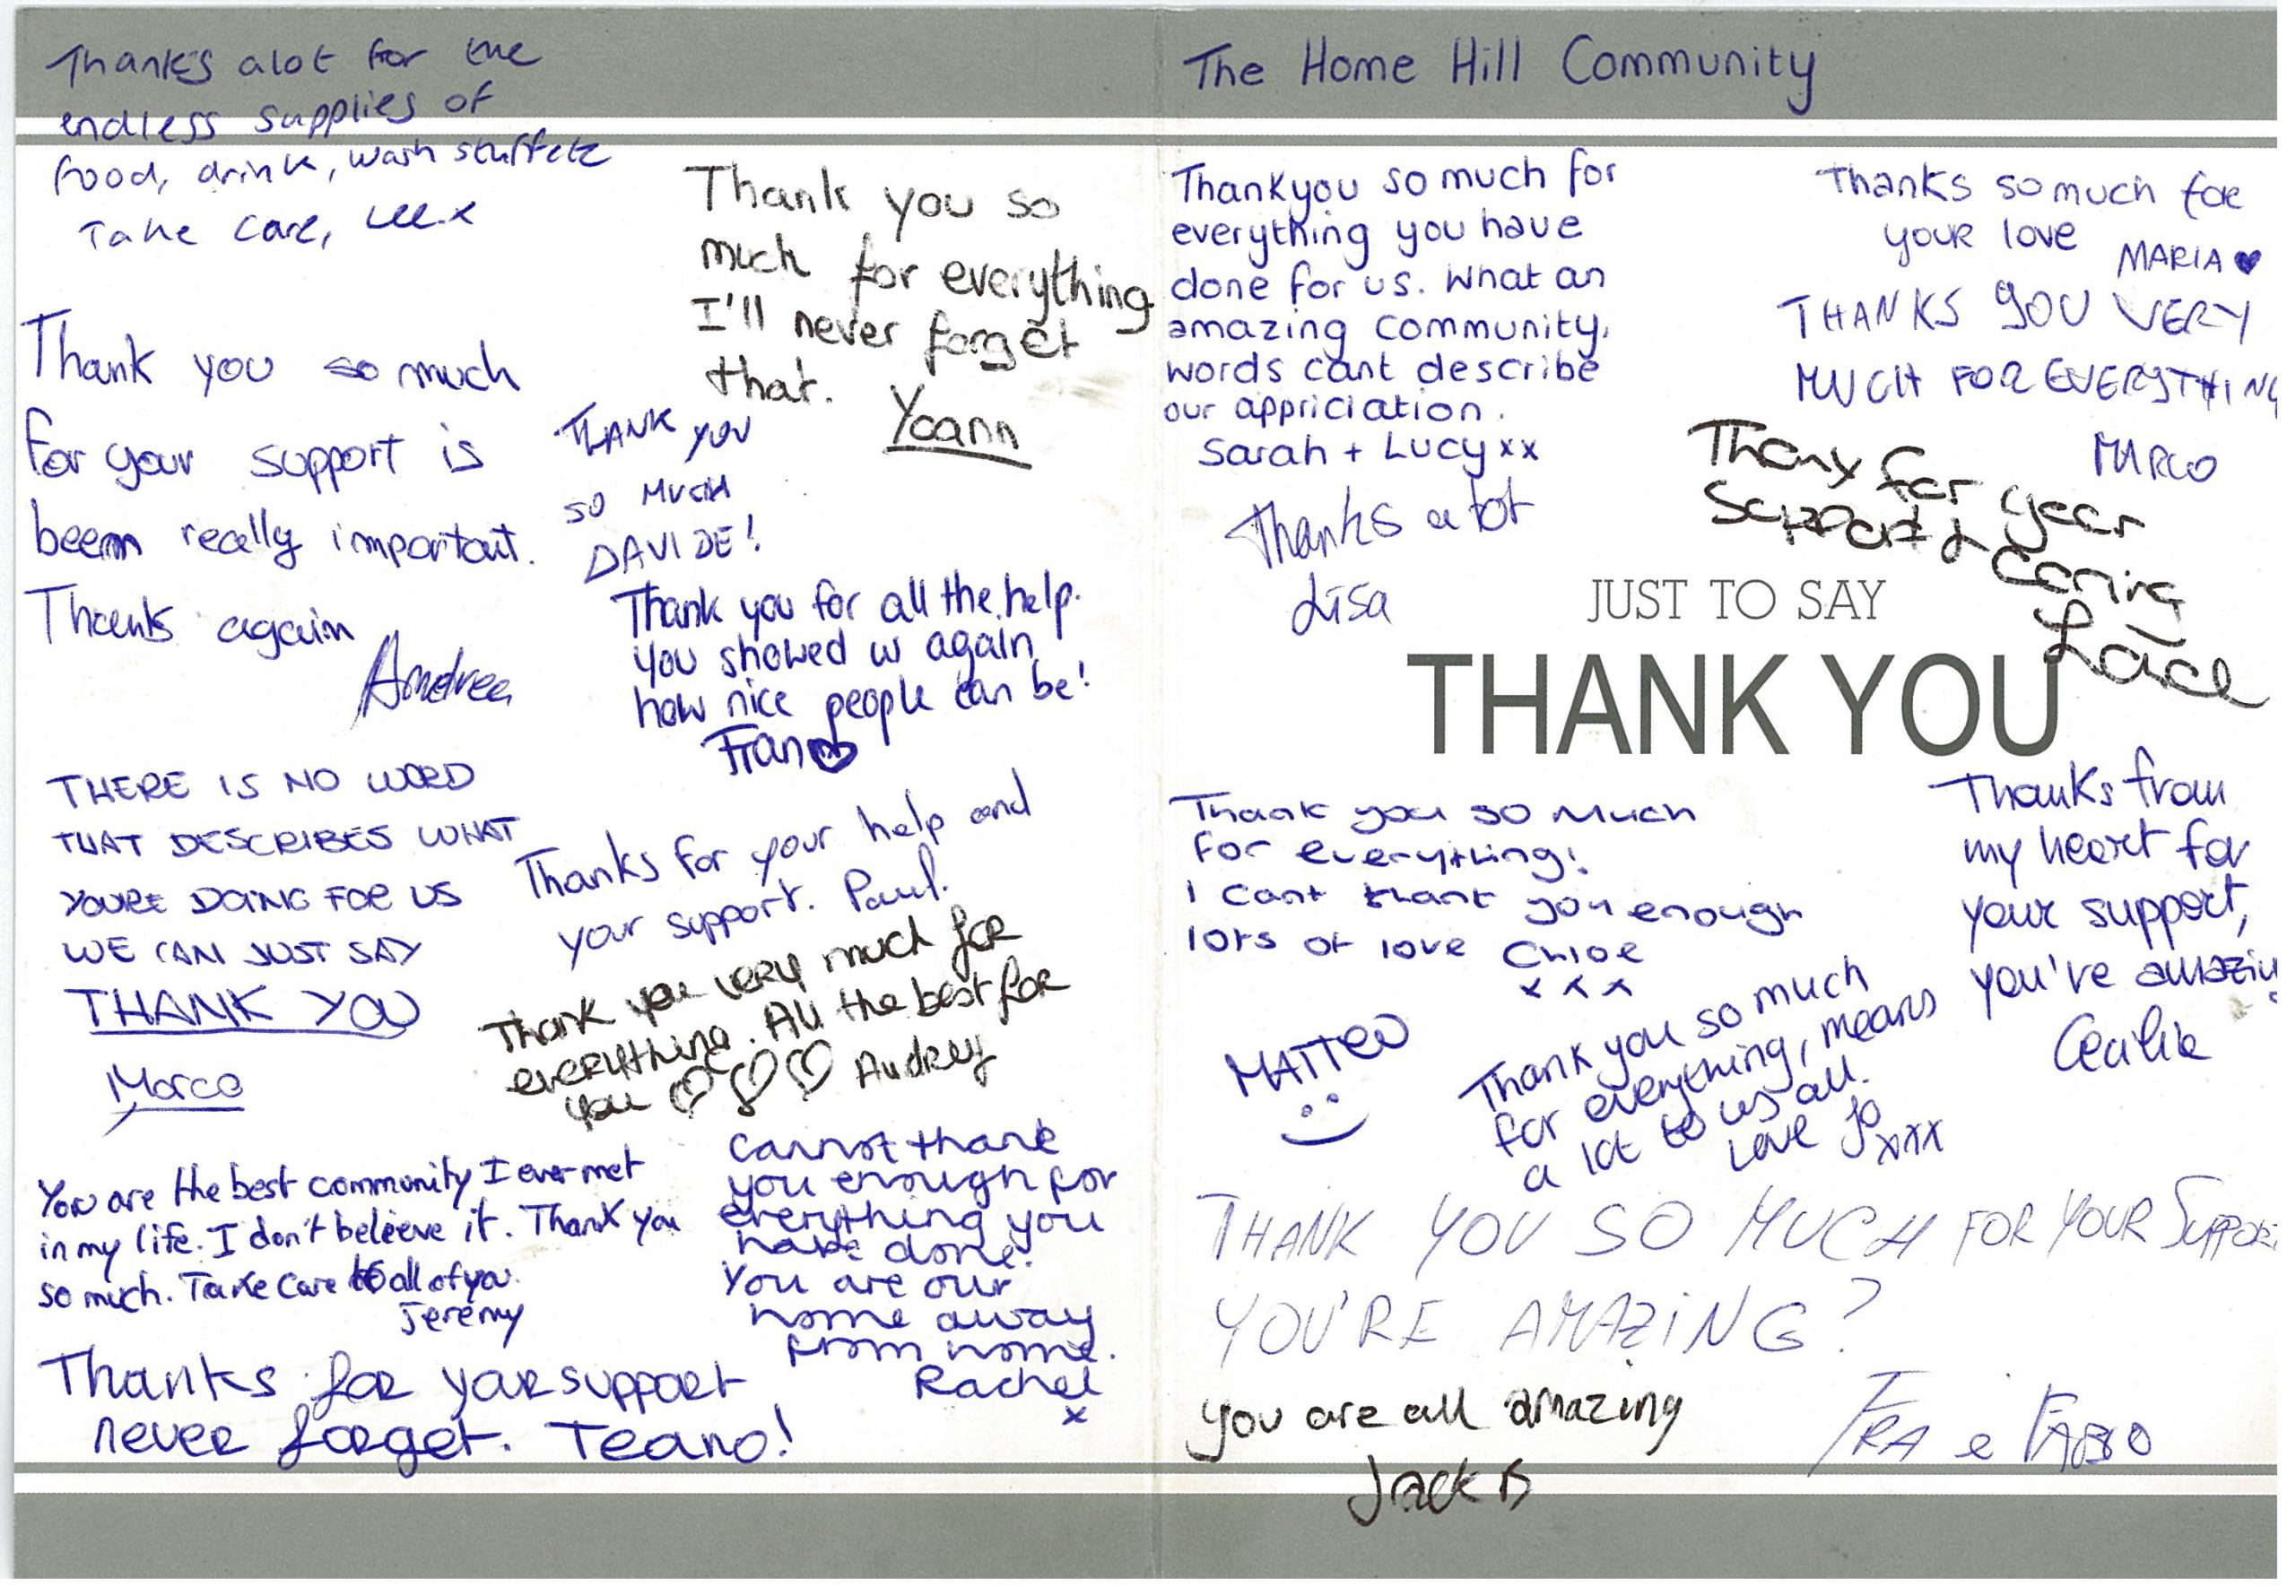 Thanks alot for the
endless supplies of
food, drink, wash stuff etc
Take care, Lee x
Thank you so
much for everything
I'll never forget
that.
Yoann
Thank you so much
for your support is
beem really important.
Thanks again
Andrea
THANK YOU
SO MUCH
DAVIDE!
Thank you for all the help.
You showed us again
how nice people can be!
Fran
THERE IS NO WORD
THAT DESCRIBES WHAT
YOU'RE DOING FOR US
WE CAN JUST SAY
THANK YOU
Marco
Thanks for your help and
your support. Paul.
Thank you very much for
everything. All the best for
you Audrey
You are the best community I ever met
in my life. I don't beleeve it. Thank you
so much. Take care to all of you.
Jeremy
Cannot thank
you enough for
everything you
have done.
You are our
home away
from home.
Rachel
x
Thanks for your support
never forget. Teano!
The Home Hill Community
Thankyou so much for
everything you have
done for us. What an
amazing community.
words cant describe
our appriciation.
Sarah + Lucy xx
Thanks so much for
your love
MARIA ♥
THANKS YOU VERY
MUCH FOR EVERYTHING
MARCO
Thanks a lot
Lisa
Thanx for your
Support &
Caring
JUST TO SAY
THANK YOU
Thank you so much
for everything!
I cant thank you enough
lots of love Chloe
x x x
Thanks from
my heart for
your support,
you've amazing
Cecilie
MATTEO
Thank you so much
for everything, means
a lot to us all.
Love Jo
xxx
THANK YOU SO MUCH FOR YOUR SUPPORT
YOU'RE AMAZING?
FRA e FABIO
you are all amazing
Jack B